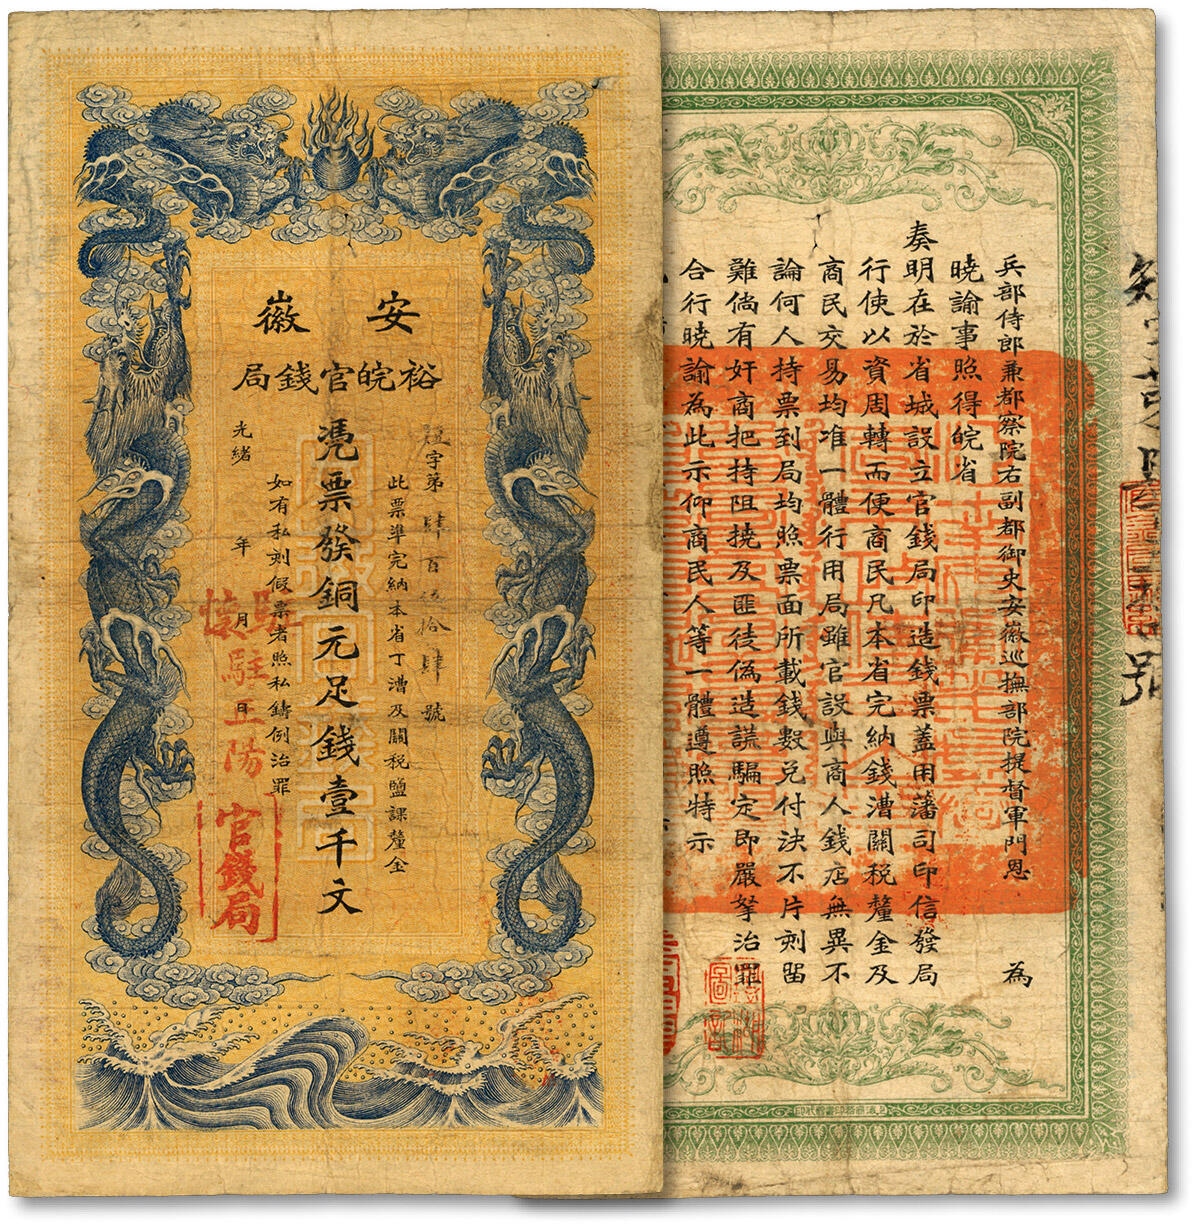 安徽
裕皖官錢局
短字第肆百伍拾肆號
此票準完納本省丁漕及關稅鹽課釐金
憑票發銅元足錢壹千文
如有私刻假票者照私鑄例治罪
光緒 年 月 日
駐正陽
官錢局
兵部侍郎兼都察院右副都御史安徽巡撫部院提督軍門恩 為
曉諭事照得皖省
奏明在於省城設立官錢局印造錢票蓋用藩司印信發局
行使以資周轉而便商民凡本省完納錢漕關稅釐金及
商民交易均准一體行用局雖官設與商人錢店無異不
論何人持票到局均照票面所載錢數兌付決不片刻留
難倘有奸商把持阻撓及匪徒偽造謊騙定即嚴拏治罪
合行曉諭為此示仰商民人等一體遵照特示